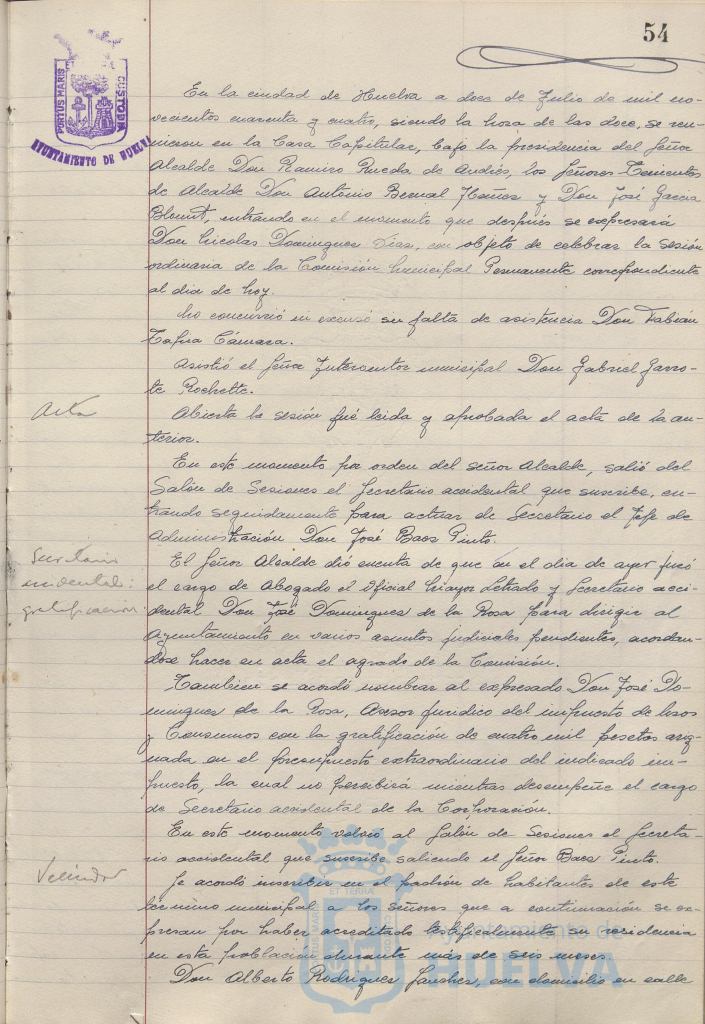 54
PORTUS MARIS ET TERRÆ CUSTODIA
AYUNTAMIENTO DE HUELVA
En la ciudad de Huelva a doce de Julio de mil no-
vecientos cuarenta y cuatro, siendo la hora de las doce, se reu-
nieron en la Casa Capitular, bajo la presidencia del Señor
Alcalde Don Ramiro Rueda de Andrés, los Señores Tenientes
de Alcalde Don Antonio Bernal Núñez y Don José Garcia
Blount, entrando en el momento que después se expresará
Don Nicolas Dominguez Días, con objeto de celebrar la sesión
ordinaria de la Comisión Municipal Permanente correspondiente
al dia de hoy.
No concurrió ni excusó su falta de asistencia Don Fabián
Tafira Cámara.
Asistió el Señor Interventor municipal Don Gabriel Garro-
te Rochette.
Acta
Abierta la sesión fué leida y aprobada el acta de la an-
terior.
En este momento por orden del señor Alcalde, salió del
Salón de Sesiones el Secretario accidental que suscribe, en-
trando seguidamente para actuar de Secretario el Jefe de
Administración Don José Baes Pinto.
Secretario
accidental:
gratificacion
El Señor Alcalde dió cuenta de que en el dia de ayer juró
el cargo de Abogado el Oficial Mayor Letrado y Secretario acci-
dental Don José Dominguez de la Rosa para dirigir al
Ayuntamiento en varios asuntos judiciales pendientes, acordan-
dose hacer en acta el agrado de la Comisión.
Tambien se acordó nombrar al expresado Don José Do-
minguez de la Rosa, Asesor Juridico del impuesto de Usos
y Consumos con la gratificación de cuatro mil pesetas asig-
nada en el presupuesto extraordinario del indicado im-
puesto, la cual no percibirá mientras desempeñe el cargo
de Secretario accidental de la Corporación.
En este momento volvió al Salón de Sesiones el Secreta-
rio accidental que suscribe saliendo el Señor Baes Pinto.
Vecindad
Se acordó inscribir en el padrón de habitantes de este
término municipal a los señores que a continuación se ex-
presan por haber acreditado testificalmente su residencia
en esta población durante más de seis meses.
Don Alberto Rodriguez Sanchez, con domicilio en calle
Ayuntamiento de
HUELVA